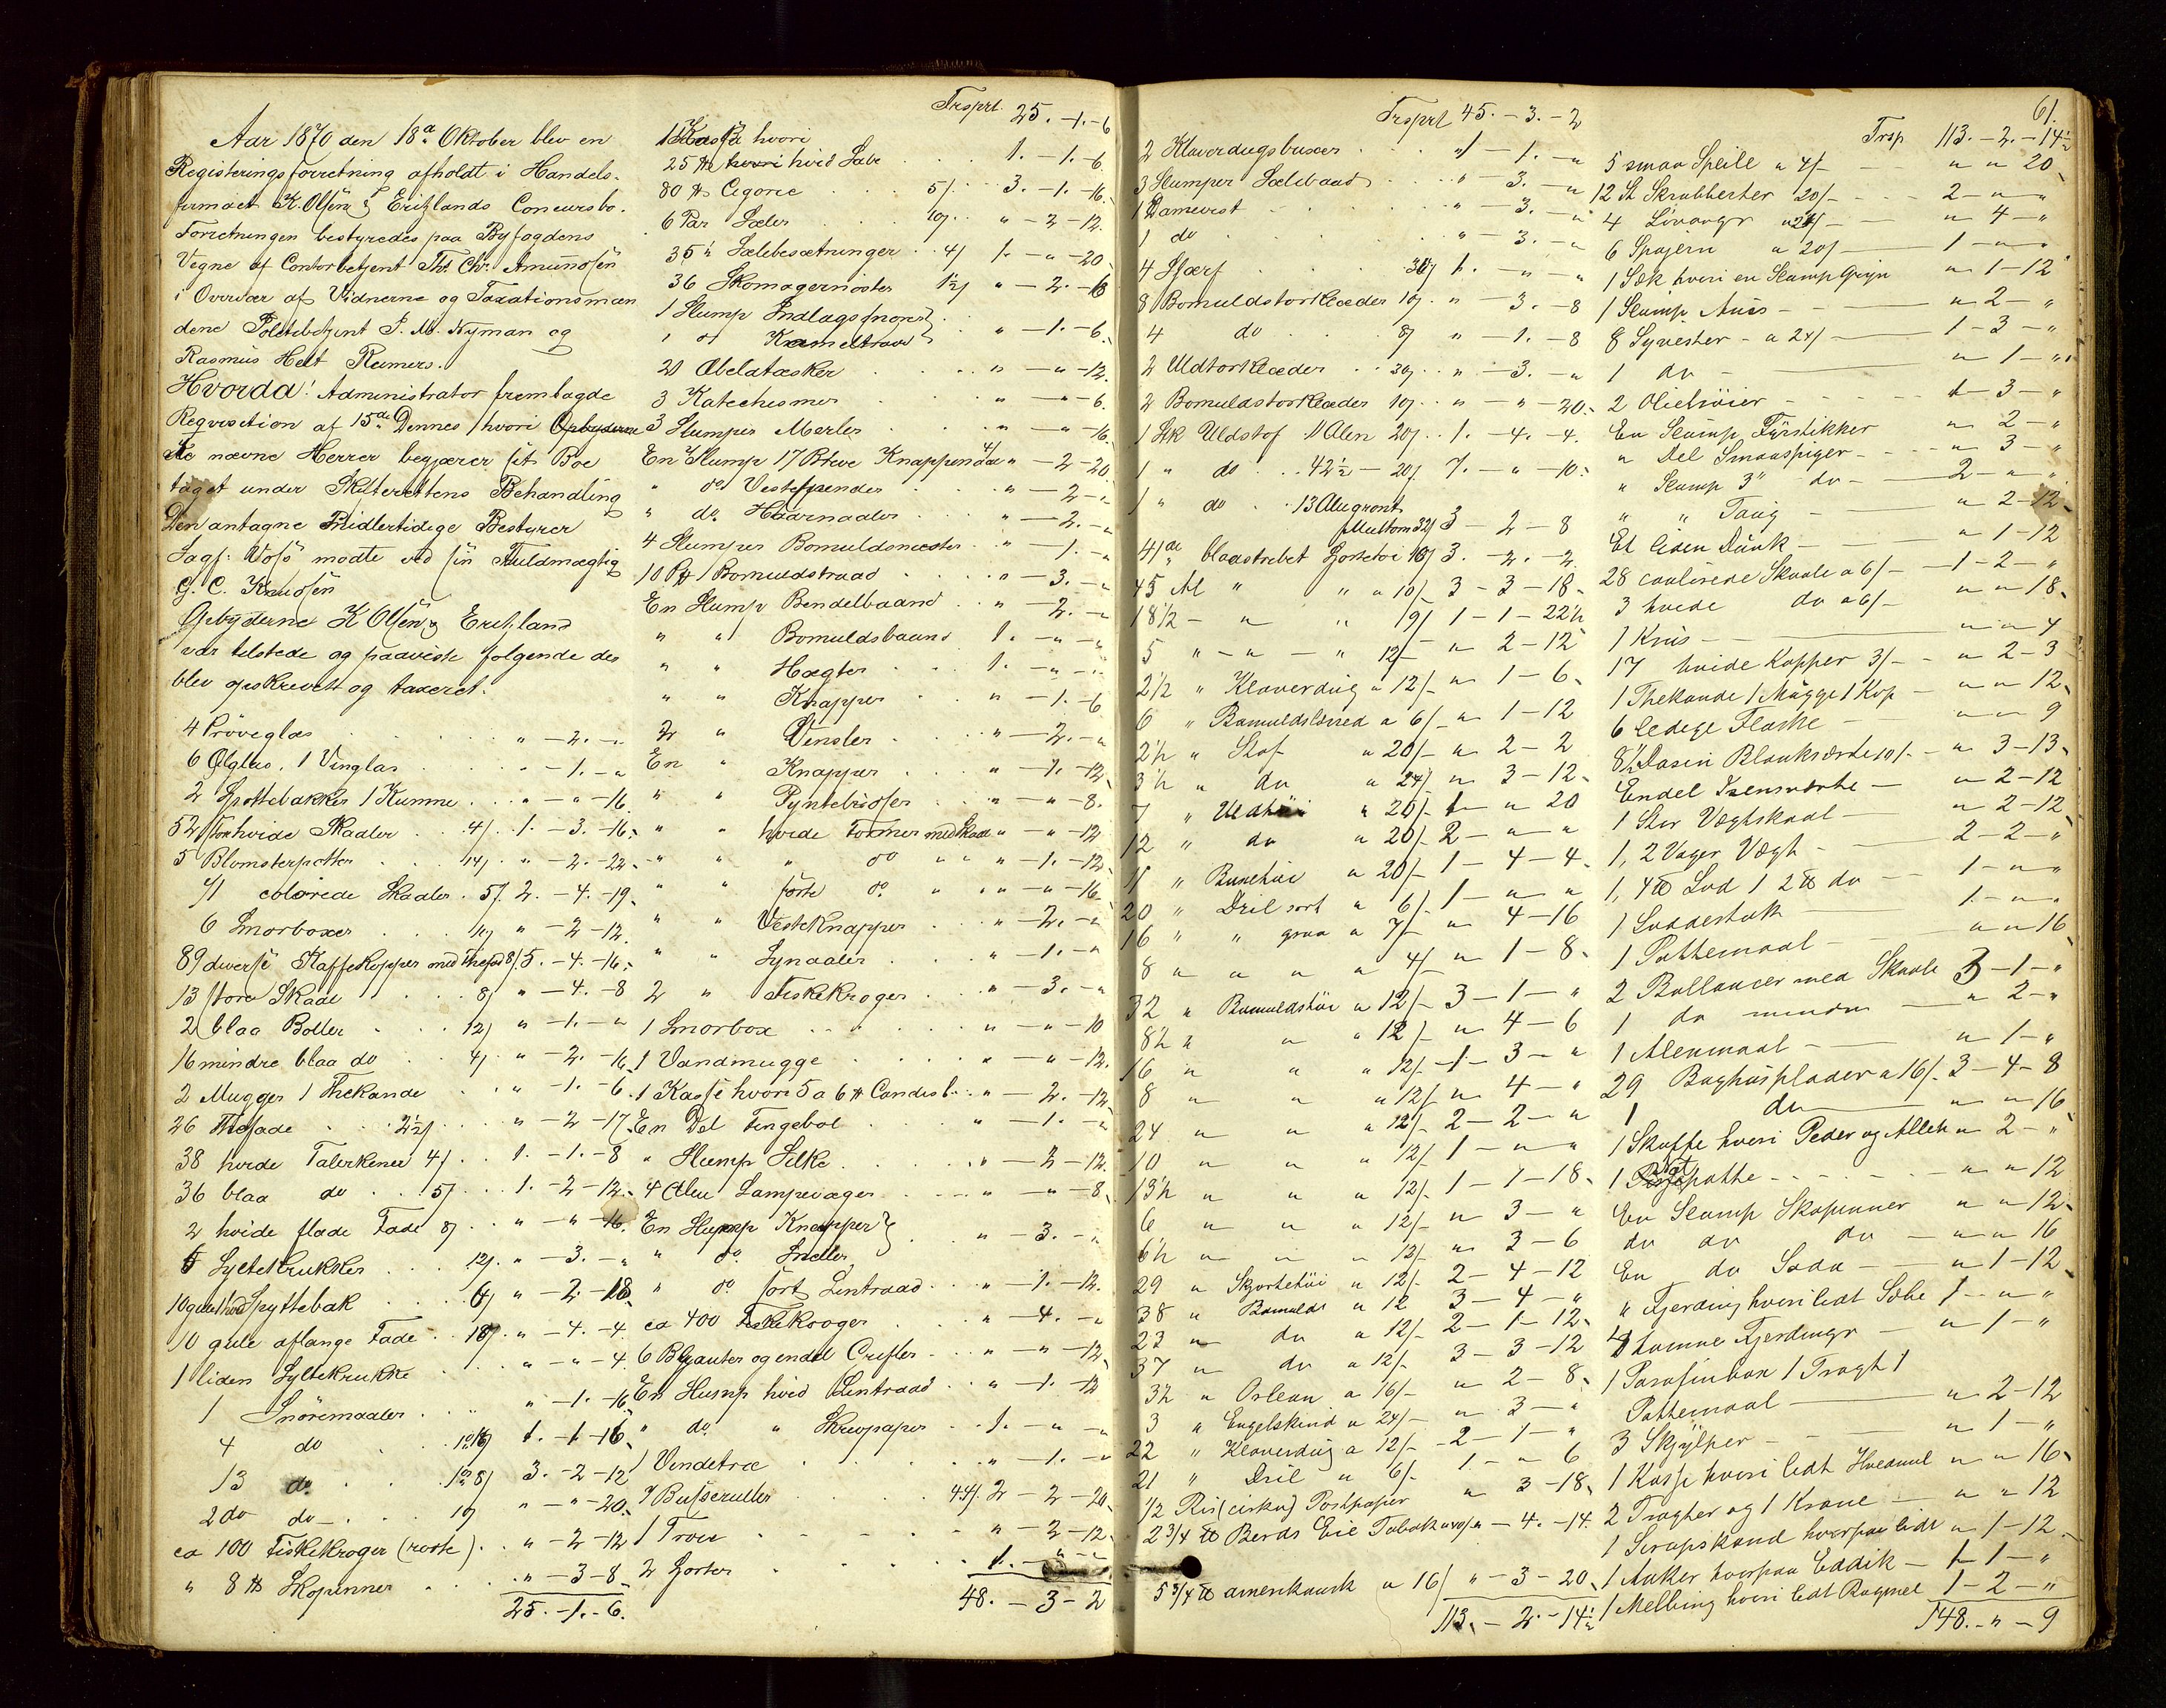 Aar 1870 den 18de Oktober blev en
Registeringsforretning afholdt i Handels-
firmaet K. Olsen & Eritzlands Concursbo.
Forretningen bestyredes paa Byfogdens
Vegne af Contorbetjent Th. Chr. Amundsen
i Overvær af Vidnerne og Taxationsmæn
dene Politibetjent P. M. Nyman og
Rasmus Helt Reimers.
Hvorda! Administrator fremlagde
Reqvisition af 15de Dennes hvori
de nævne Herrer begjærer sit Boe
taget under Skifterettens Behandling
Den antagne Midlertidige Bestyrer
Sagf: Voss mødte ved sin Fuldmægtig
G. C. Knudsen
Gebyderne K Olsen & Eritzland
var tilstede og paaviste følgende der
blev opskrevet og taxeret.
4 Prøveglas " - 2. - "
6 Ølglas, 1 Vinglas " - 1. - "
2 Spyttebakker 1 Kumme " - " - 16
52 smhvide Skaaler 4/ 1. - 3. - 16
5 Blomsterpotter 14/ " - 2. - 22
71 colörede Skaaler 5/ 2. - 4. - 19
6 Smørboxer 10/ " - 2 - 12
89 diverse Kaffekopper med Thefad 8/ 5. - 4. - 16
13 store Skaale 8/ " - 4. - 8
2 blaa Boller 12/ " - 1. - "
16 mindre blaa do 4/ " - 2. - 16
2 Mugger 1 Thekande " - 1. - 6
26 Thefade 2½/ " - 2 - 17
38 hvide Talerkener 4/ 1. - 1. - 8
36 blaa do 5/ 1. - 2 - 12
2 hvide flade Fade 8/ " - " - 16
6 Syltekrukker 12/ " - 3. - "
10 gule Spyttebak 6/ " - 2 - 18
10 gule aflange Fade 10/ " - 4. - 4
1 liden Syltekrukke " - " - 4
1 Snøremaaler " - 1. - 16
4 do 1. - 1 - 16
13 do 3. - 2 - 12
2 do do 10/ " - " - 20
ca 100 Fiskekroger (roste) " - 2 - 12
" 8 ℔ Skopinner " - 3 - 8
25. - 1. - 6.
Trsprt. 25. - 1. - 6
1 Kasse hvori
25 ℔ hvid Sæbe 1. - 1. - 6
80 ℔ Cigorie 5/ 3. - 1. - 16
6 Par Sæler 10/ " - 2 - 12
35 " Sælebesætninger 4/ 1. - " - 20
36 Skomagernister 1½/ " - 2. - 6
1 Slump Indlagssnorer
" do Kameltraad " - 1. - 6
20 Abelatasker " - " - 12
3 Katechismer " - " - 6
3 Slumper Merler " - " - 16
En Slump 17 Breve Knappenaale 4/ " - 2 - 20
" do Vestespender " - 2 - "
" do Haarnaaler " - 2. - "
4 Slumper Bomuldsnøster " - 1. - "
10 ℔ Bomuldstraad " - 3. - "
En Slump Bendelbaand " - 2. - "
" " Bomuldsbaand 1. - " - "
" " Hægter 1. - " - "
" " Knapper " - 1. - 6
2 " Vensler " - 2. - "
En " Knapper " - 1. - 12
" " Pyntebroser " - " - 8
" " hvide Former med Traad " - " - 12
" " " do " " " - 1. - 12
" " sorte do " " " - " - 16
" " Vesteknapper " - 2. - "
" " Synaaler " - 1. - "
2 " Fiskekroger " - 3. - "
1 Smorboxe " - " - 10
1 Vandmugge " - " - 12
1 Kasse hvori 5 a 6 ℔ Candis " - 2. - 12
En Del Fingebøl " - 1. - "
" Slump Silke " - 2 - 12
4 Alen Lampevæger " - " - 8
En Slump Knapper
" do Sneller " - 3. - "
" do sort Lintraad " - 1. - 12
ca 400 Fiskekroger " - 4. - "
6 Blyanter og endel Crifler " - " - 12
En Slump hvid Lintraad " - 1. - 12
" do " Skrivpapir 1. - " - "
1 Vindetræ " - 1. - "
7 Busseruller 44/ 2 - 2 - 20
1 Troie " - 2 - 12
2 Sjorter 1. - " - "
48. - 3 - 2
Trsprt 45. - 3. - 2
2 Klaverdugsbuxer " - 1. - "
3 Slumper Sælebaand " - 3. - "
1 Damevest " - 3. - "
1 do " - 3. - "
4 Skjærf 30/ 1. - " - "
8 Bomuldstorklæder 10/ " - 3. - 8
4 do 8/ " - 1. - 8
2 Uldtorklæder 30/ " - 3. - "
2 Bomuldstorklæder 10/ " - " - 20
1 Stk Uldstof 11 Alen 20/ 1. - 4. - 4
1 " do 42½ - 20/ 7. - " - 10
1 " do 13 Al
Multom 32/ 3 - 2 - 8
41 al blaastribet Sjortetoi 10/ 3. - 2. - 2
45 Al " " a 10/ 3 - 3 - 18
18½ - " " 9/ 1 - 1 - 22½
5 " - " - " 12/ " 2 - 12
2½ " Klaverdug a 12/ " 1 - 6
6 " Bomuldslærred a 6/ " 1 - 12
2½ " Stof a 20/ " 2 - 2
3½ " do a 24/ " 3 - 12
7 " Uldtøi a 20/ 1 - " 20
12 " do a 20/ 2 - " - "
11 " Buxetøi a 20/ 1 - 4 - 4
20 " Dril sort a 6/ 1 - " - "
16 " " graa a 7/ " 4 - 16
8 " " " a 4/ " 1 - 8
32 " Bomuldstøi a 12/ 3 - 1 - "
8½ " " a 12/ " 4 - 6
16 " " a 12/ 1 - 3 - "
8 " " a 12/ " 4 - "
24 " " a 12/ 2 - 2 - "
10 " " a 12/ 1 - " - "
13½ " " a 12/ 1 - 1 - 18
6 " " a 12/ " 3 - "
6½ " " a 12/ " 3 - 6
29 " Skjortetøi a 12/ 2 - 4 - 12
38 " Bomulds a 12 3 - 4 - "
23 " do a 12/ 2 - 1 - 12
37 " do a 12/ 3 - 3 - 12
3½ " Orlean a 16/ " 2 - 8
3 " Engelskind a 24/ " 3 - "
22 " Klaverdug a 12/ 2 - 1 - "
21 " Dril a 6/ 1 - " 6
1/2 Ris (cirka) Postpapir " 3 - 18
2 3/4 ℔ Berds Eie Tobak " - 4. - 14
5 3/4 ℔ amerikansk a 16/ " - 3 - 20
113. - 2. - 14½
61.
Trsp 113. - 2. - 14½
5 smaa Speile a 4/ " " 20
12 St Skrubberter 20/ 2 - " - "
4 " 4 - "
6 Spajern a 20/ 1 - " - "
1 Sæk hvori en Slump Gryn " 1 - 12
1 Slump Anis " 2 - "
8 Syvester a 24/ 1 - 3 - "
1 do " 1 - "
2 Oliehøier 1 - 3 - "
En Slump Fyrstikker " 2 - "
" Del Smaaspiger " 3 - "
" Slump 3" do 2 - " "
" " Taug " 2 - 12
Et liden Dunk " 1 - 12
28 coulørede Skaale a 6/ 1 - 2 - "
3 hvide do a 6/ " " 18
1 Krus " " 4
17 hvide Kopper 3/ " 2 - 3
1 Thekande 1 Mugge 1 Kop " " 12
6 ledige Flaske " " 9
8½ Dosin Blanksværte 10/ " 3 - 13
Endel Isensværte " 2 - 12
1 Stor Vægtskaal " 2 - 12
1, 2 Vager Vægt 2 - 2 - "
1, 4 ℔ Lod 1 2 ℔ do 1 - " - "
1 Loddestok 1 - " - "
1 Pottemaal " " 16
2 Ballancer med Skaale 3 - 1 - "
1 do mindre " 2 - "
1 Alenmaal " 1 - "
29 Boghusplader a 16/ 3 - 4 - 8
1 do " " 16
1 Skuffe hvori Peder og Alleh " 2 - "
1 Natpotte " " 12
En Slump Skopinner " " 12
do do do " " 16
En do Soda " 1 - 12
" Fjerding hvori lidt Sæbe 1 - " - "
4 tomme Fjerdinger " 1 - "
1 Parafinbox 1 Tragt 1
Pottemaal " 2 - 12
3 Skjylper " 1 - "
1 Kasse hvori lidt Hvedmel " " 16
2 Tragter og 1 Krane " " 12
1 Sirupskand hvorpaa lidt " 1 - 12
1 Anker hvorpaa Eddik 1 - 1 - "
1 Melbing hvori lidt Rugmel 1 - 2 - "
148. - " - 9